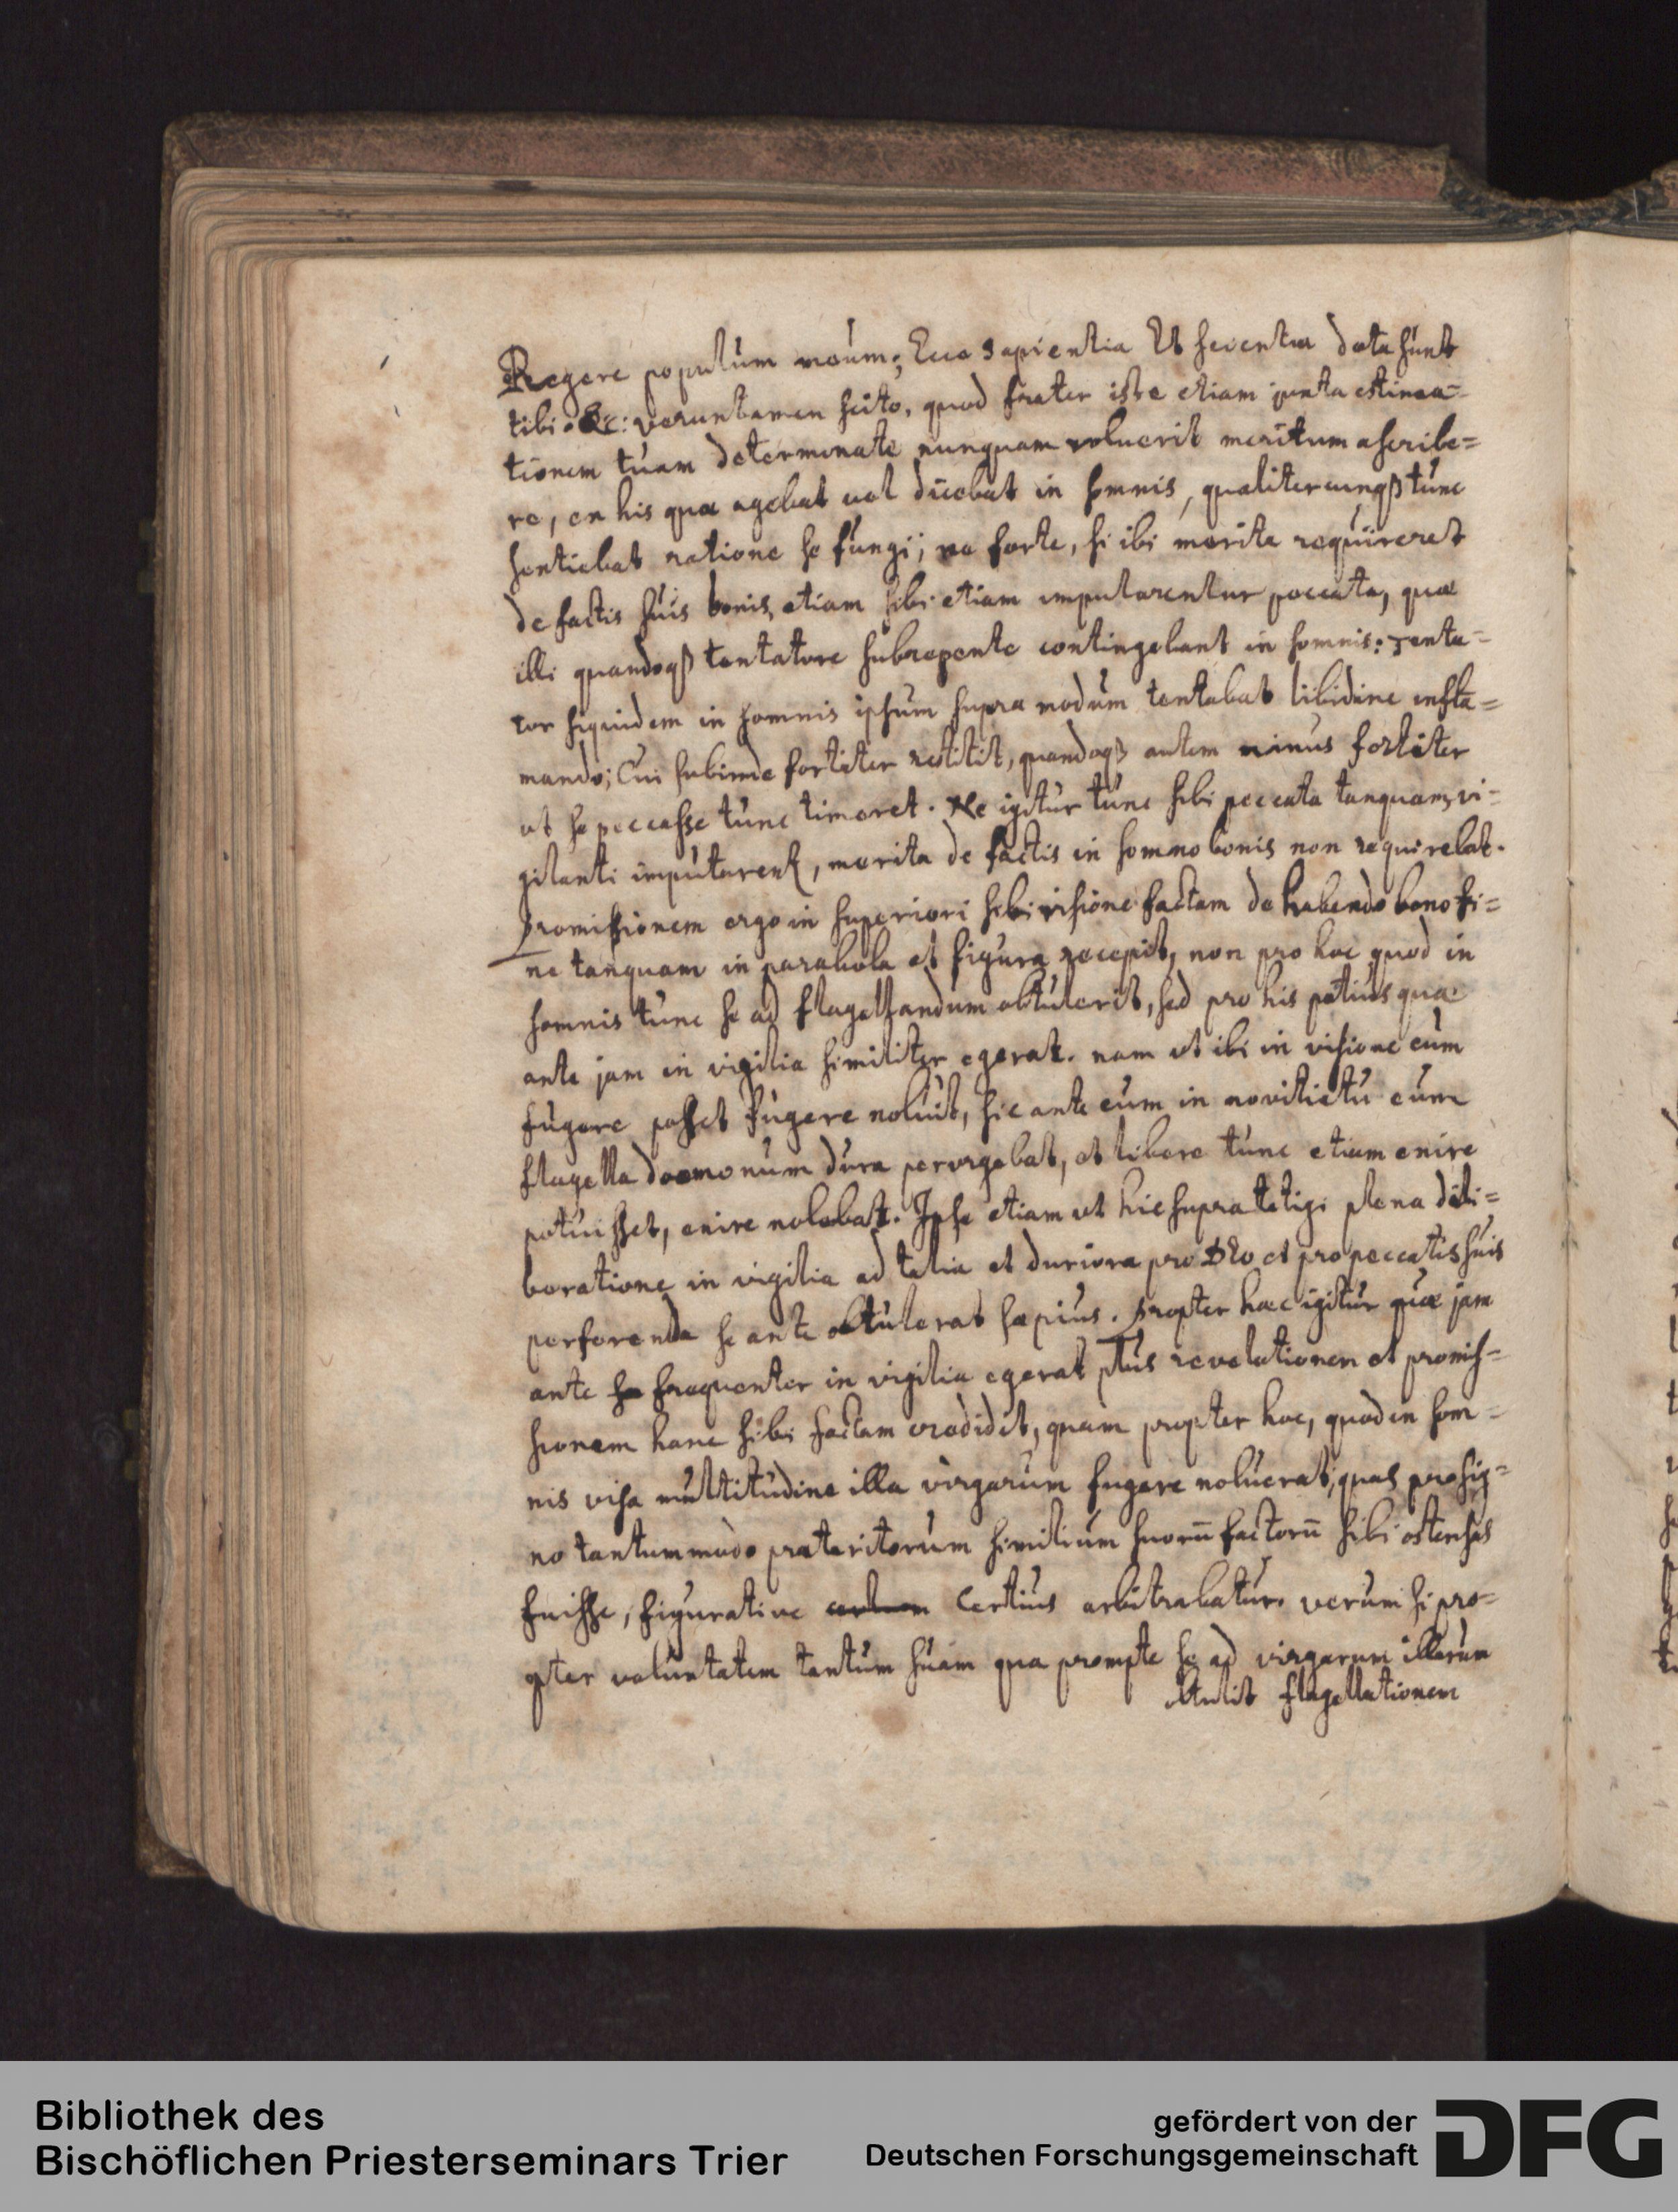 Regere populum meum; Ecce sapientia Et scientia data sunt
tibi. &c: veruntamen scito, quod frater iste etiam juxta estima=
tionem tuam determinate nunquam voluerit meritum ascribe=
re, ex his quæ agebat vel dicebat in somnis, qualitercunqß tunc
sentiebat ratione se fungi; ne forte, si ibi merita requireret
de factis suis bonis, etiam sibi etiam imputarentur peccata, quæ
illi quandoqß tentatore subrepente contingebant in somnis: Tenta=
tor siquidem in somnis ipsum supra modum tentabat libidine infla=
mando; Cui subinde fortiter restitit, quandoqß autem minus fortiter
ut se peccasse tunc timeret. Ne igitur tunc sibi peccata tanquam vi=
gilanti imputarent, merita de factis in somno bonis non requirebat.
Promissionem ergo in superiori sibi visione factam de habendo bono fi=
ne tanquam in parabola et figura recepit, non pro hoc quod in
somnis tunc se ad flagellandum obtulerit, sed pro his potius quæ
ante jam in vigilia similiter egerat. nam ut ibi in visione cum
fugere posset fugere noluit, sic ante cum in novitiatu eum
flagella dæmonum dura perurgebat, et libere tunc etiam exire
potuisset, exire nolebat. Ipse etiam ut hic supra tetigi plena deli=
beratione in vigilia ad talia et duriora pro DEo et pro peccatis suis
perferenda se ante obtulerat sæpius. Propter hæc igitur quæ jam
ante se frequenter in vigilia egerat plus revelationem et promis=
sionem hanc sibi factam credidit, quam propter hoc, quod in som=
nis visa multitudine illa virgarum fugere noluerat; quas pro sig=
no tantummodo præteritorum similium suorū factorū sibi ostensas
fuisse, figurative certum Certius arbitrabatur. verum si pro=
pter voluntatem tantum suam qua prompte se ad virgarum illarum
obtulit flagellationem
Bibliothek des
Bischöflichen Priesterseminars Trier
gefördert von der
Deutschen Forschungsgemeinschaft
DFG